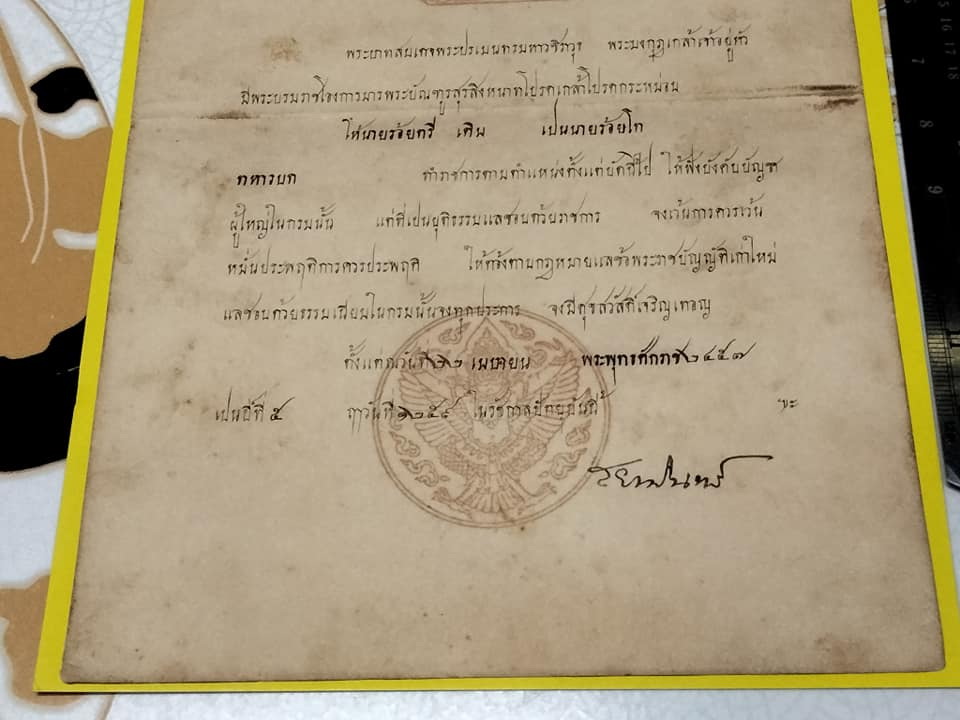 พระบาทสมเดจพระปรเมนทรมหาวชิราวุธ พระมงกุฎเกล้าเจ้าอยู่หัว
มีพระบรมราชโองการมารพระบัณฑูรสุรสิงหนาทโปรดเกล้าโปรดกระหม่อม
ให้นายร้อยตรี เดิน เปนนายร้อยโท
ทหารบก ทำราชการตามตำแหน่งตั้งแต่บัดนี้ไป ให้ฟังบังคับบัญชา
ผู้ใหญ่ในกรมนั้น แต่ที่เปนยุติธรรมแลชอบด้วยราชการ จงเว้นการควรเว้น
หมั่นประพฤติการควรประพฤติ ให้ต้องตามกฎหมายแลข้อพระราชบัญญัติเก่าใหม่
แลชอบด้วยธรรมเนียมในกรมนั้นจงทุกประการ จงมีศุขสวัสดิ์เจริญเทอญ
ตั้งแต่ณวันที่ ๒๒ เมษายน พระพุทธศักราช ๒๔๕๗
เปนปีที่ ๕ ฤๅวันที่ ๑๒๕๙ ในรัชกาลปัตยุบันนี้ ฯะ
สยามินทร์
15 16 17 18
7
8
9